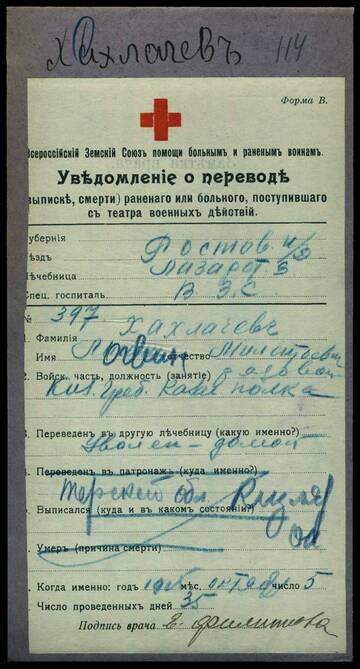 Хахлачевъ 114
Форма В.
Всероссійскій Земскій Союзъ помощи больнымъ и раненымъ воинамъ.
Увѣдомленіе о переводѣ
выпискѣ, смерти) раненаго или больного, поступившаго
съ театра военныхъ дѣйствій.
Губернія Ростов н/Д
ѣздъ Лазарет 3
Лѣчебница
Спец. госпиталь В. З. С
№ 397
1. Фамилія Хахлачевъ
Имя Отчество
2. Войск. часть, должность (занятіе) 2 первой
Киз. Греб. Казач полка
3. Переведенъ въ другую лѣчебницу (какую именно?)
Уволен - домой
4. Переведенъ въ патронажъ (куда именно?)
Терский обл. Кизляр
5. Выписался (куда и въ какомъ состояніи?)
От
Умеръ (причина смерти)
. Когда именно: годъ 1915 мѣс. октября число 5
Число проведенныхъ дней 35
Подпись врача Е. Филиппова